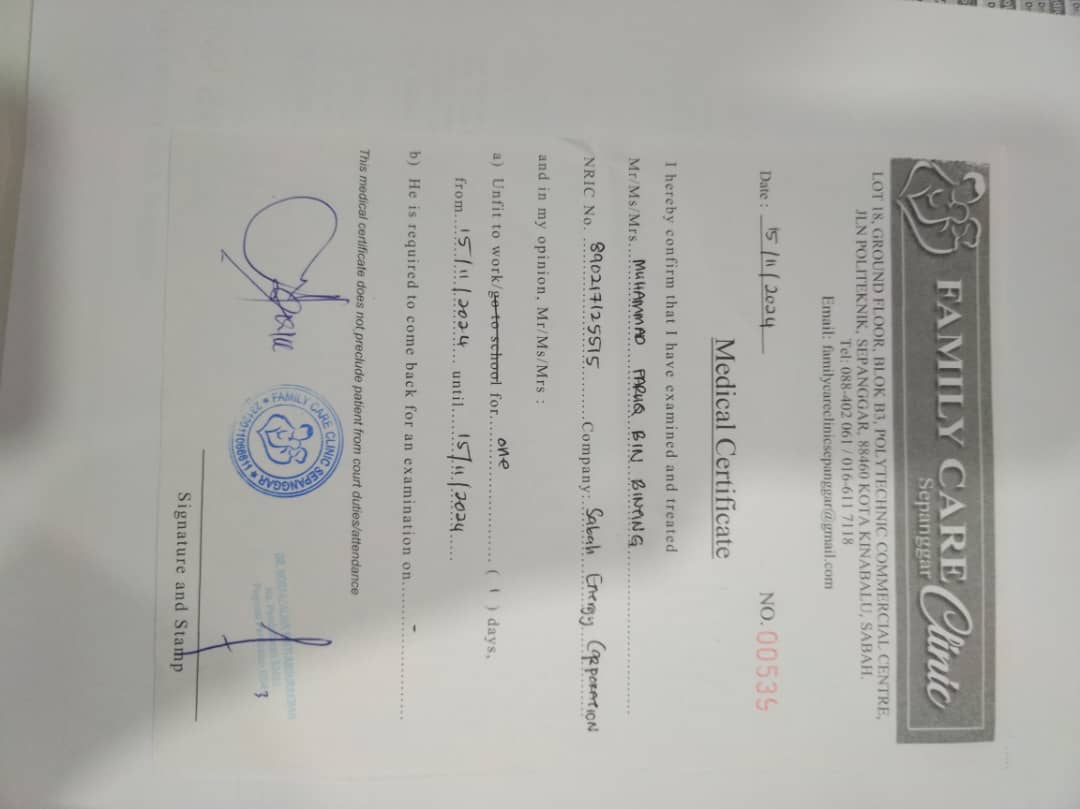 FAMILY CARE Clinic
Sepanggar
LOT 18, GROUND FLOOR, BLOK B3, POLYTECHNIC COMMERCIAL CENTRE,
JLN POLITEKNIK, SEPANGGAR, 88460 KOTA KINABALU, SABAH.
Tel: 088-402 061 / 016-611 7118
Email: familycareclinicsepanggar@gmail.com
Date : 15/11/2024
NO. 00539
Medical Certificate
I hereby confirm that I have examined and treated
Mr/Ms/Mrs. MUHAMMAD FARUQ BIN BINTANG
NRIC No. 890217125515 Company: Sabah Energy CORPORATION
and in my opinion, Mr/Ms/Mrs :
a) Unfit to work/go to school for one ( 1 ) days,
from 15/11/2024 until 15/11/2024
b) He is required to come back for an examination on -
This medical certificate does not preclude patient from court duties/attendance
FAMILY CARE CLINIC SEPANGGAR
Signature and Stamp